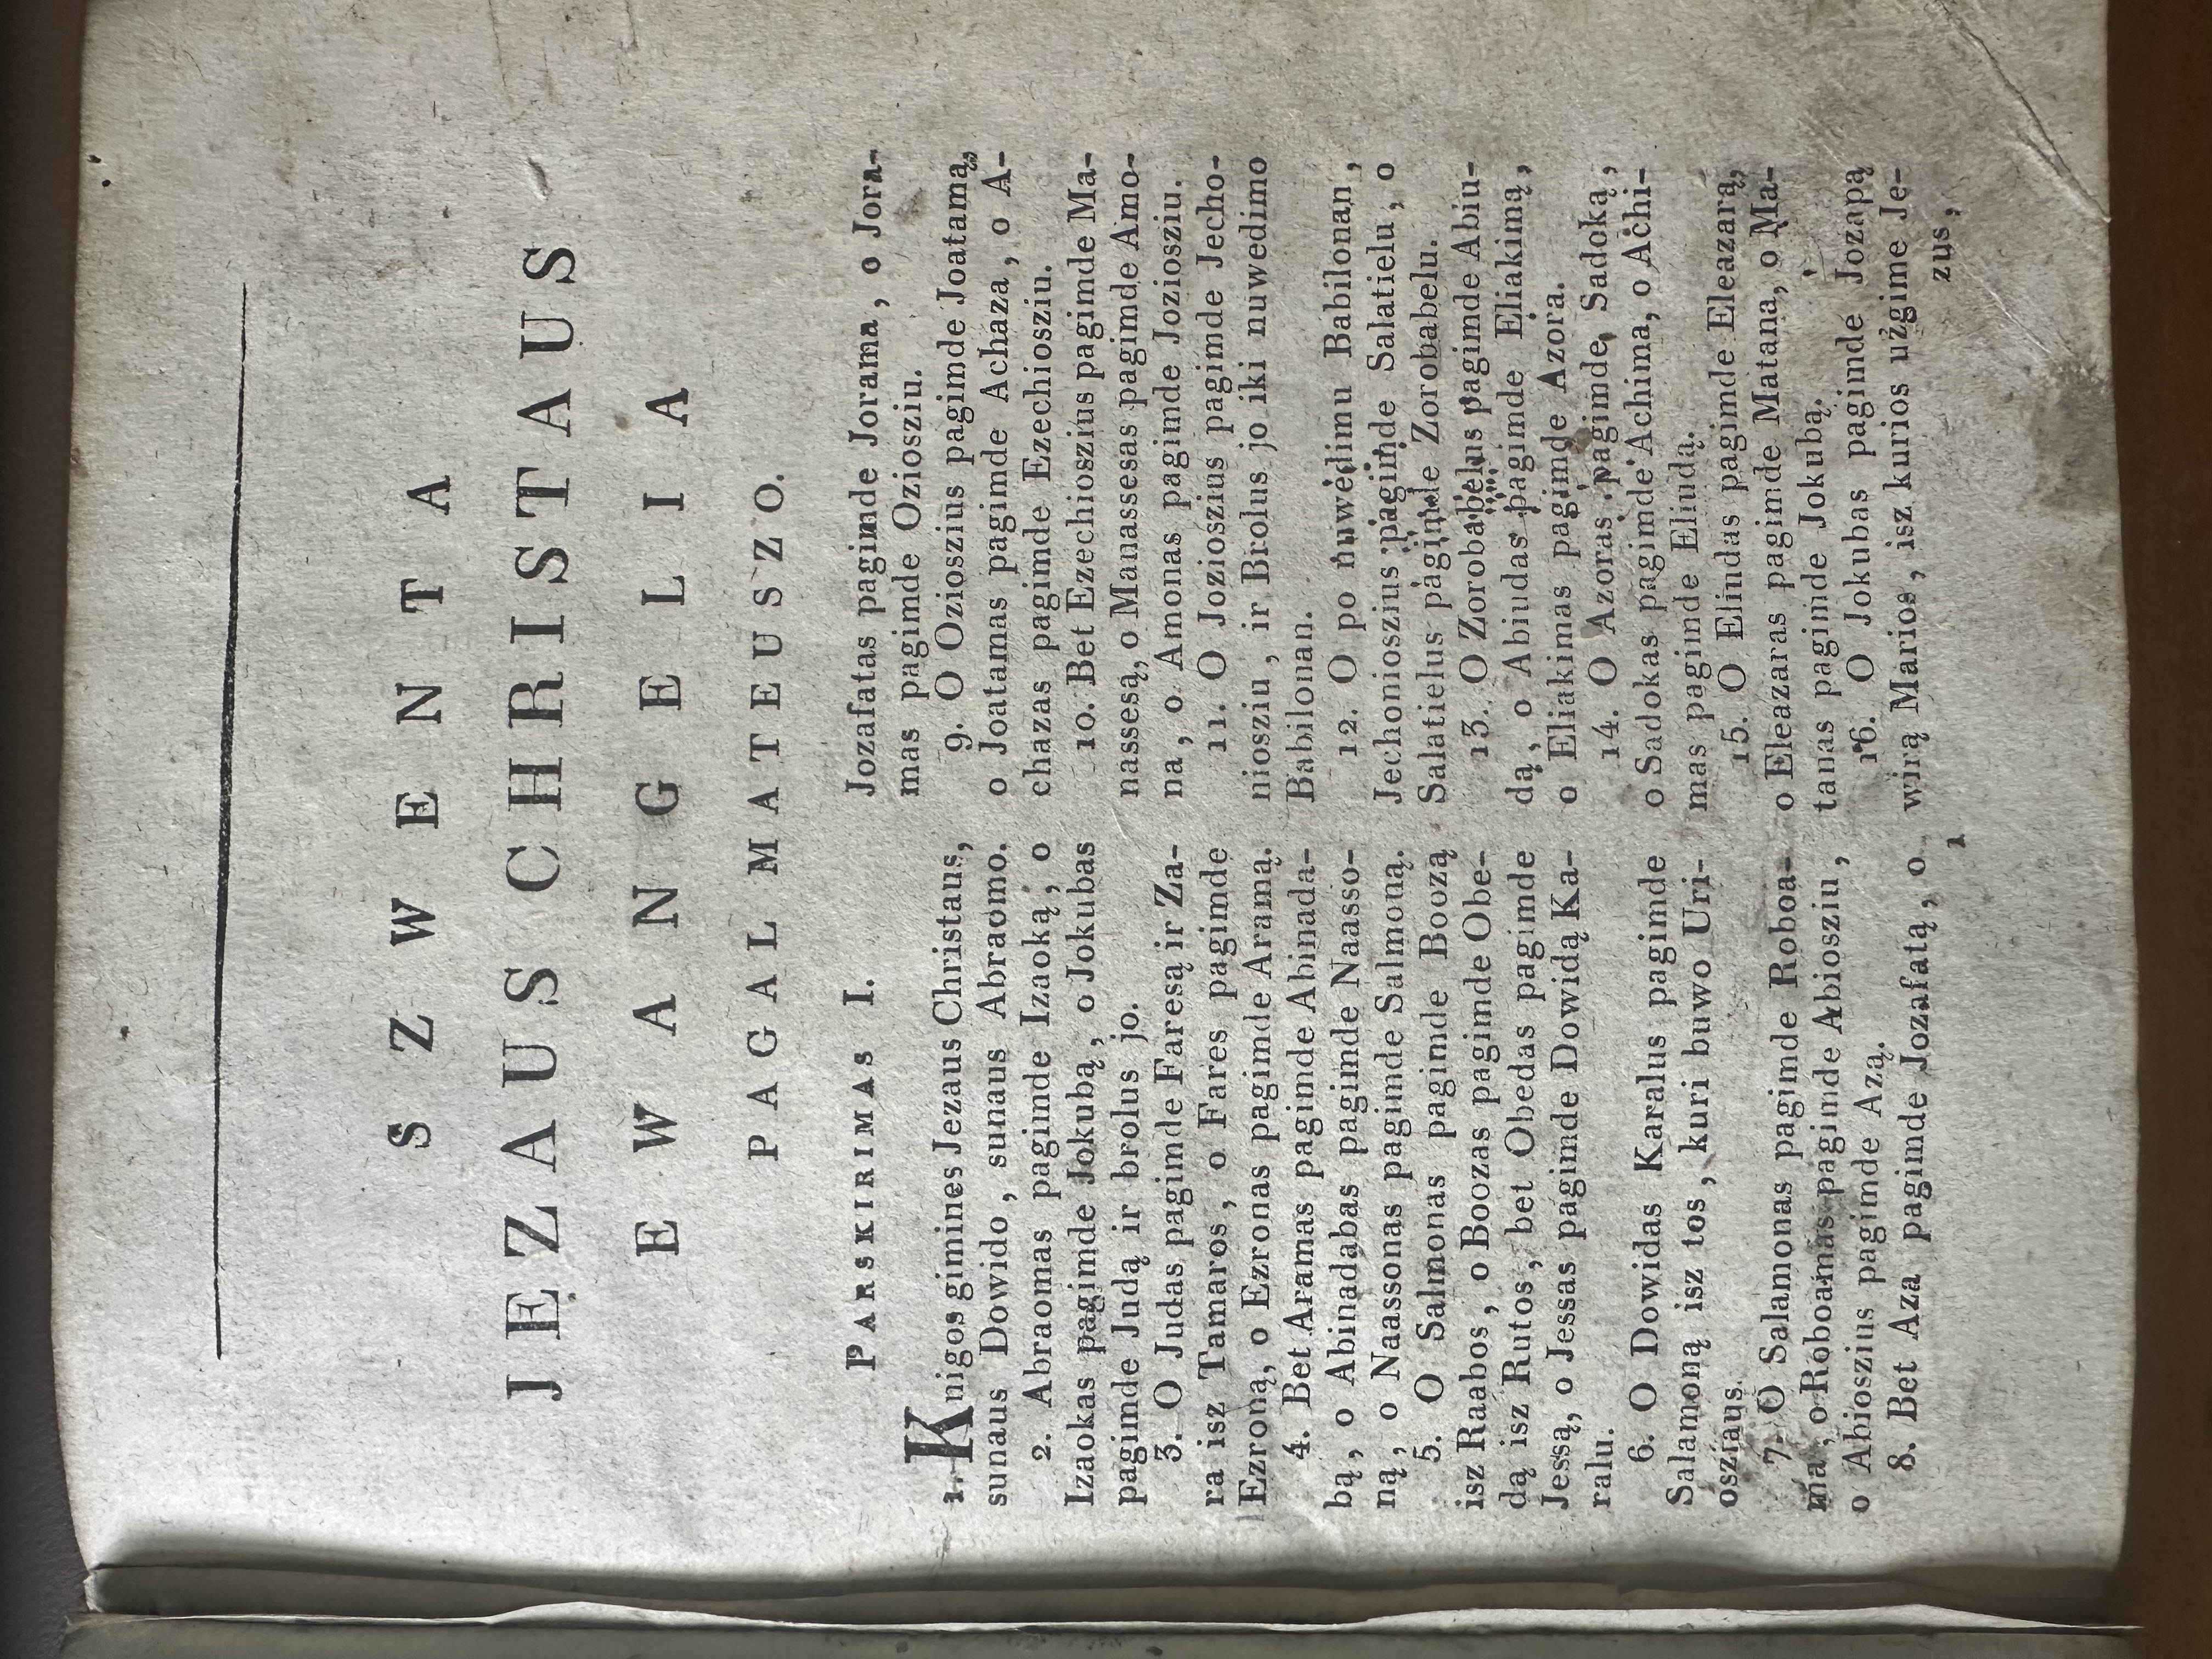 SZWENTA
JEZAUS CHRISTAUS
EWANGELIA
PAGAL MATEUSZO.
PARSKIRIMAS I.
1. Knigos gimines Jezaus Christaus,
sunaus Dowido, sunaus Abraomo.
2. Abraomas pagimde Izaoką, o
Izaokas pagimde Jokubą, o Jokubas
pagimde Judą ir brolus jo.
3. O Judas pagimde Faresą ir Za-
ra isz Tamaros, o Fares pagimde
Ezroną, o Ezronas pagimde Aramą.
4. Bet Aramas pagimde Abinada-
bą, o Abinadabas pagimde Naasso-
ną, o Naassonas pagimde Salmoną.
5. O Salmonas pagimde Boozą
isz Raabos, o Boozas pagimde Obe-
dą isz Rutos, bet Obedas pagimde
Jessą, o Jessas pagimde Dowidą Ka-
ralu.
6. O Dowidas Karalus pagimde
Salamoną isz tos, kuri buwo Uri-
osziaus.
7. O Salamonas pagimde Roboa-
ma, o Roboamas pagimde Abiosziu,
o Abioszius pagimde Azą.
8. Bet Aza pagimde Jozafatą, o
Jozafatas pagimde Jorama, o Jora-
mas pagimde Oziosziu.
9. O Ozioszius pagimde Joatamą,
o Joatamas pagimde Achaza, o A-
chazas pagimde Ezechiosziu.
10. Bet Ezechioszius pagimde Ma-
nassesą, o Manassesas pagimde Amo-
na, o Amonas pagimde Joziosziu.
11. O Jozioszius pagimde Jecho-
niosziu, ir Brolus jo iki nuwedimo
Babilonan.
12. O po nuwedimu Babilonan,
Jechonioszius pagimde Salatielu, o
Salatielus pagimde Zorobabelu.
13. O Zorobabelus pagimde Abiu-
dą, o Abiudas pagimde Eliakimą,
o Eliakimas pagimde Azora.
14. O Azoras pagimde Sadoką,
o Sadokas pagimde Achima, o Achi-
mas pagimde Eliudą.
15. O Elindas pagimde Eleazarą,
o Eleazaras pagimde Matana, o Ma-
tanas pagimde Jokubą.
16. O Jokubas pagimde Jozapą
wirą Marios, isz kurios użgime Je-
1
zus,